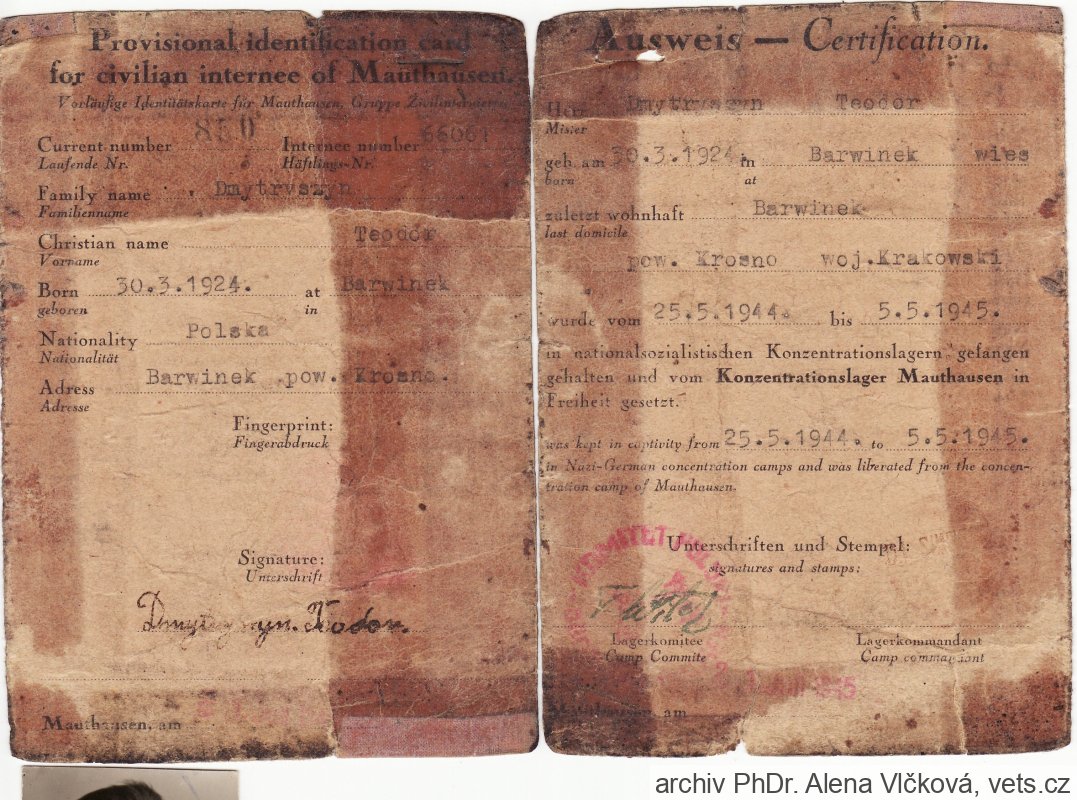 Provisional identification card
for civilian internee of Mauthausen.
Vorläufige Identitätskarte für Mauthausen, Gruppe Zivilinternierte
Current number 850 Internee number 66061
Laufende Nr. Häftlings-Nr.
Family name Dmytryszyn
Familienname
Christian name Teodor
Vorname
Born 30.3.1924. at Barwinek
geboren in
Nationality Polska
Nationalität
Adress Barwinek pow. Krosno.
Adresse
Fingerprint:
Fingerabdruck
Signature:
Unterschrift
Dmytryszyn Teodor.
Mauthausen, am
Ausweis — Certification.
Herr Dmytryszyn Teodor
Mister
geb. am 30.3.1924 in Barwinek wies
born at
zuletzt wohnhaft Barwinek
last domicile
pow. Krosno woj.Krakowski
wurde vom 25.5.1944. bis 5.5.1945.
in nationalsozialistischen Konzentrationslagern gefangen
gehalten und vom Konzentrationslager Mauthausen in
Freiheit gesetzt.
was kept in captivity from 25.5.1944. to 5.5.1945.
in Nazi-German concentration camps and was liberated from the concen-
tration camp of Mauthausen.
Unterschriften und Stempel:
signatures and stamps:
Lagerkomitee Lagerkommandant
Camp Commite Camp commandant
Mauthausen, am
archiv PhDr. Alena Vlčková, vets.cz